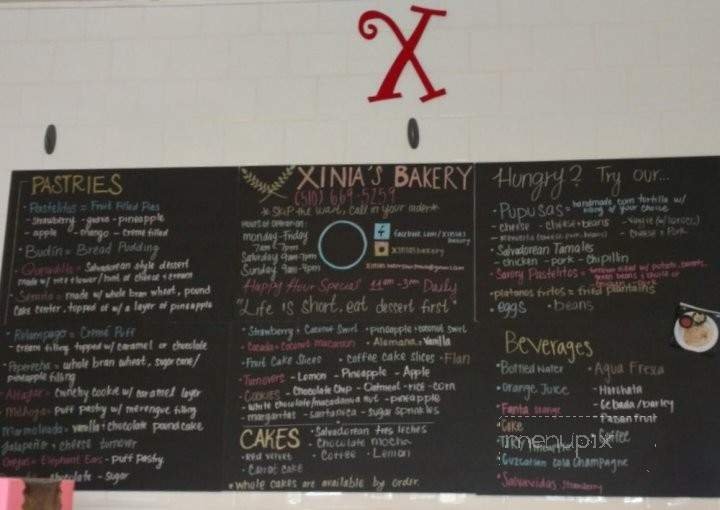 X
PASTRIES
· Pastelitos = Fruit Filled Pies
- Strawberry - guava - pineapple
- apple - mango - creme filled
· Budin = Bread Pudding
· Quesadilla = Salvadorean style dessert
made w/ rice flower/hint of cheese + cream
· Semita = made w/ whole bran wheat, pound
cake center, topped of w/ a layer of pineapple
· Relampago = Creme Puff
- cream filling topped w/ caramel or chocolate
Peperecha = whole bran wheat, sugar cane/
pineapple filling
Alfajor = crunchy cookie w/ caramel layer
Milhoja = puff pastry w/ merengue filling
Marmoleada = vanilla + chocolate pound cake
Jalapeño + cheese turnover
Orejas = Elephant Ears - puff pastry
chocolate - sugar
XINIA'S BAKERY
(510) 669-5259
* Skip the wait, call in your order *
Hours of operation:
monday-Friday
7am - 7pm
Saturday 9am-7pm
Sunday 9am-4pm
f facebook.com/xinias
bakery
xiniasbakery
Happy Hour Special 11am-3pm Daily
"Life is short, eat dessert first"
· Strawberry + Coconut swirl · pineapple + coconut swirl
· Cocada = Coconut macaroon · Alemana - Vanilla
· Fruit Cake Slices · coffee cake slices · Flan
· Turnovers - Lemon - Pineapple - Apple
· Cookies - Chocolate Chip - Oatmeal - rice - corn
- white chocolate/macadamia nut - pineapple
- margaritas - santanica - sugar sprinkles
CAKES
· Salvadorean tres leches
· Chocolate mocha
· Red velvet
· Coffee · Lemon
· Carrot cake
* whole cakes are available by order
Hungry? Try our...
· Pupusas = handmade corn tortilla w/
filling of your choice
- cheese - cheese + beans
- cheese + pork
· Salvadorean Tamales
- chicken - pork - chipilin
· Savory Pastelitos =
· platanos fritos = fried plantains
· eggs · beans
Beverages
· Bottled Water
· Agua Fresca
· Orange Juice
- Horchata
· Fanta
- Cebada/barley
· Coke
menupix
· Cuzcatlan Cola Champagne
· Salvavidas Strawberry